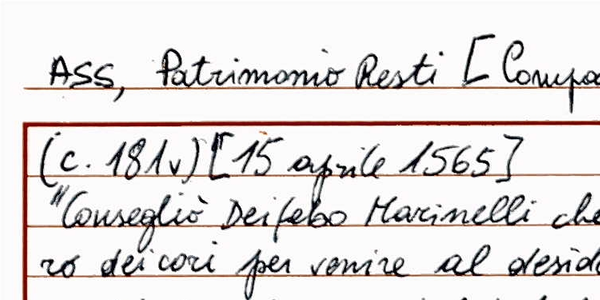 ASS, Patrimonio Resti [Compa
(c. 181v) [15 aprile 1565]
"Consegliò Deifebo Marinelli che
ro dei cori per venire al desid